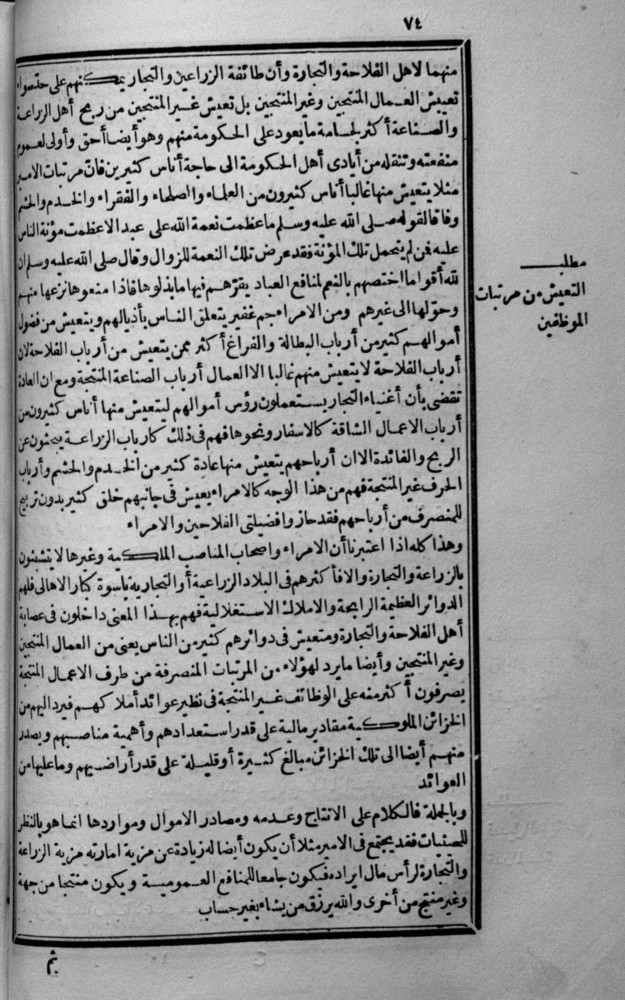 ٧٤
منهما لاهل الفلاحة والتجارة وأن طائفة الزراعين والتجار يمكنهم على حد سواء
تعييش العمال المنتجين وغير المنتجين بل تعيش غير المنتجين من ربح أهل الزراعة
والصناعة أكثر لجسامة ما يعود على الحكومة منهم وهو أيضا أحق وأولى لعموم
منفعته وتنقله من أيادى أهل الحكومة الى حاجة أناس كثيرين فان مرتبات الامير
مثلا يتعيش منها غالبا أناس كثيرون من العلماء والصلحاء والفقراء والخدم والحشم
وفاقا لقوله صلى الله عليه وسلم ما عظمت نعمة الله على عبد الا عظمت مؤنة الناس
عليه فمن لم يتحمل تلك المؤنة فقد عرض تلك النعمة للزوال وقال صلى الله عليه وسلم ان
لله أقواما اختصهم بالنعم لمنافع العباد يقرهم فيها ما بذلوها فاذا منعوها نزعها منهم
وحولها الى غيرهم ومن الامراء جم غفير يتعلق الناس بأذيالهم ويتعيش من فضول
أموالهم كثير من أرباب البطالة والفراغ أكثر ممن يتعيش من أرباب الفلاحة لان
أرباب الفلاحة لا يتعيش منهم غالبا الا العمال أرباب الصناعة المنتجة ومع ان العادة
تقضى بأن أغنياء التجار يستعملون رؤس أموالهم ليتعيش منها أناس كثيرون من
أرباب الاعمال الشاقة كالاسفار ونحوها فهم فى ذلك كأرباب الزراعة يبحثون عن
الربح والفائدة الا ان أرباحهم يتعيش منها عادة كثير من الخدم والحشم وأرباب
الحرف غير المنتجة فهم من هذا الوجه كالامراء يعيش فى جانبهم خلق كثير بدون تربيح
للمنصرف من أرباحهم فقد حازوا فضيلتى الفلاحين والامراء
وهذا كله اذا اعتبرنا أن الامراء واصحاب المناصب الملكية وغيرها لا يتشبثون
بالزراعة والتجارة والا فأكثرهم فى البلاد الزراعية أو التجارية بأسوة كبار الاهالى فلهم
الدوائر العظيمة الرابحة والاملاك الاستغلالية فهم بهذا المعنى داخلون فى عصابة
أهل الفلاحة والتجارة ومتعيش فى دوائرهم كثير من الناس يعنى من العمال المنتجين
وغير المنتجين وأيضا ما يرد لهؤلاء من المرتبات المنصرفة من طرف الاعمال المنتجة
يصرفون أكثر منه على الوظائف غير المنتجة فى نظير عوائد أملاكهم فيرد اليهم من
الخزائن الملوكية مقادير مالية على قدر استعدادهم وأهمية مناصبهم ويصدر
منهم أيضا الى تلك الخزائن مبالغ كثيرة أو قليلة على قدر أراضيهم وما عليها من
العوائد
وبالجملة فالكلام على الانتاج وعدمه ومصادر الاموال ومواردها انما هو بالنظر
للحيثيات فقد يجتمع فى الامير مثلا أن يكون أيضا له زيادة عن مزية امارته مزية الزراعة
والتجارة لرأس مال ايراده فيكون جامعا للمنافع العمومية ويكون منتجا من جهة
وغير منتج من أخرى والله يرزق من يشاء بغير حساب
مطلب
التعيش من مرتبات
الموظفين